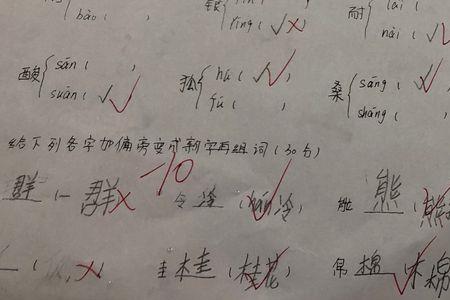 bǎo ( )
xíng ( 耐 lài (
nài (
酸 sān ( 独 hú ( ) 桑 sāng (
suān ( fú ( ) shāng (
给下列各字加偏旁变成新字再组词(30分)
群 (一群 -10 令 冷 ( 冷) 能 熊 (熊
( 圭 桂 (桂花) 帛 棉 (木棉